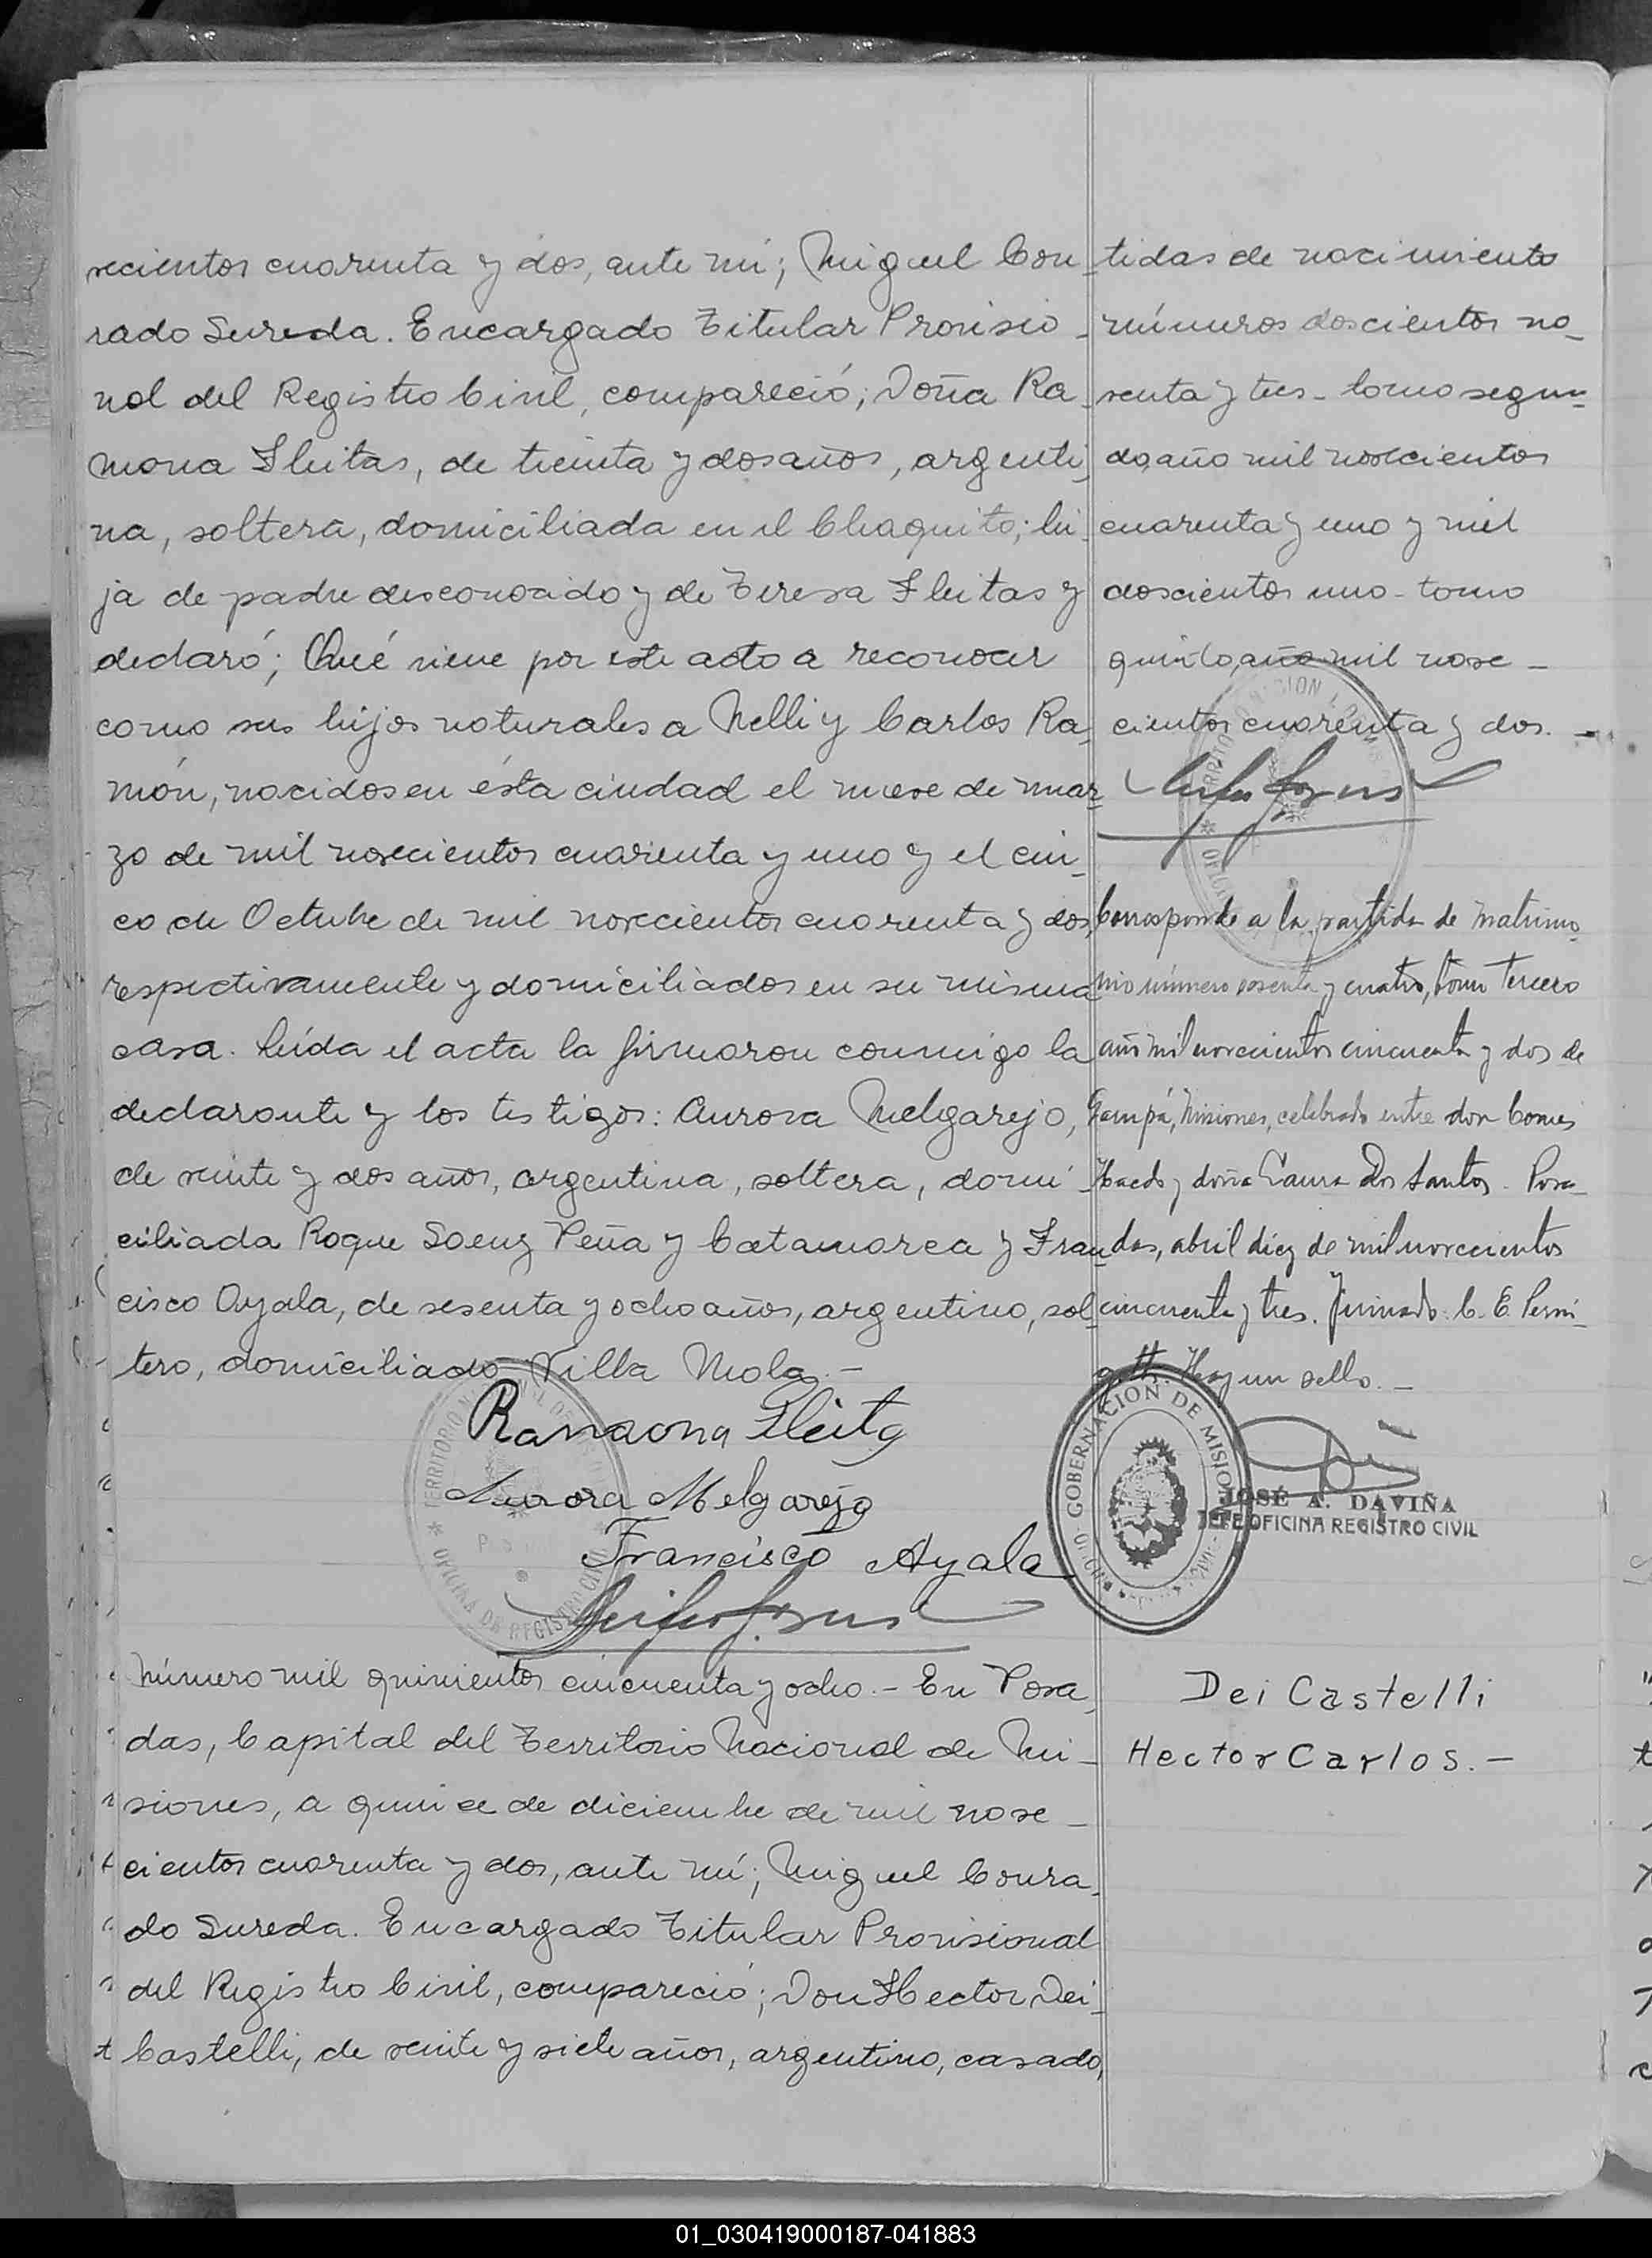 vecientos cuarenta y dos, ante mí; Miguel Con-
rado Sureda. Encargado Titular Provisio-
nal del Registro Civil, compareció; Doña Ra-
mona Fleitas, de treinta y dos años, argenti-
na, soltera, domiciliada en el Chaquito; hi-
ja de padre desconocido y de Teresa Fleitas y
declaró; Qué viene por este acto a reconocer
como sus hijos naturales a Nelli y Carlos Ra-
món, nacidos en ésta ciudad el nueve de mar-
zo de mil novecientos cuarenta y uno y el cin-
co de Octubre de mil novecientos cuarenta y dos,
respectivamente y domiciliados en su misma
casa. Leída el acta la firmaron conmigo la
declarante y los testigos: Aurora Melgarejo,
de veinte y dos años, argentina, soltera, domi-
ciliada Roque Saenz Peña y Catamarca y Fran-
cisco Ayala, de sesenta y ocho años, argentino, sol-
tero, domiciliado Villa Mola.-
Ramaona Fleita
Aurora Melgarejo
Francisco Ayala
TERRITORIO
OFICINA DE REGISTRO CIVIL
Número mil quinientos cincuenta y ocho.- En Posa-
das, Capital del Territorio Nacional de Mi-
siones, a quince de diciembre de mil nove-
cientos cuarenta y dos, ante mí; Miguel Conra-
do Sureda. Encargado Titular Provisional
del Registro Civil, compareció; Don Hector Dei-
Castelli, de veinte y siete años, argentino, casado,
tidas de nacimiento
números doscientos no-
venta y tres - tomo segun-
do, año mil novecientos
cuarenta y uno y mil
doscientos uno - tomo
quinto, año mil nove-
cientos cuarenta y dos. -
Corresponde a la partida de matrimo-
nio número sesenta y cuatro, tomo tercero
año mil novecientos cincuenta y dos de
Misiones, celebrado entre don
y doña Laura Dos Santos. Posa-
das, abril diez de mil novecientos
cincuenta y tres. Firmado: C. E.
Hay un sello. -
GOBERNACION DE MISIONES
JOSÉ A. DAVIÑA
JEFE OFICINA REGISTRO CIVIL
Dei Castelli
Hector Carlos. -
01_030419000187-041883